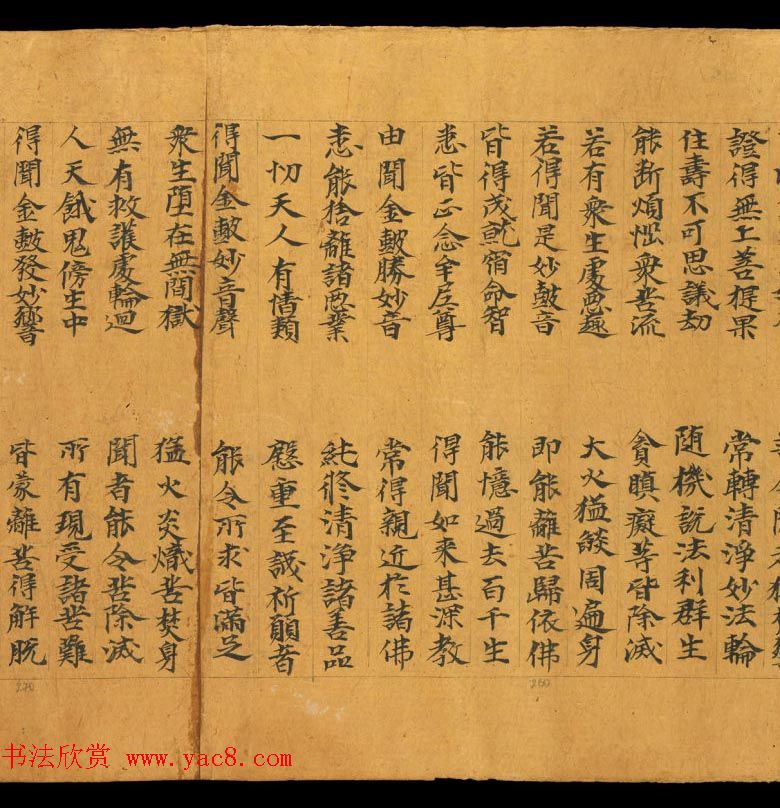 證得無上菩提果 常轉清淨妙法輪
住壽不可思議劫 随機説法利群生
能断煩惱衆苦流 貪瞋癡等皆除滅
若有衆生處惡趣 大火猛焰周遍身
若得聞是妙鼓音 即能離苦歸依佛
皆得成就宿命智 能憶過去百千生
悉皆正念牟尼尊 得聞如来甚深教
由聞金鼓勝妙音 常得親近於諸佛
悉能捨離諸惡業 純修清淨諸善品
一切天人有情類 慇重至誠祈願者
得聞金鼓妙音聲 能令所求皆滿足
衆生墮在無間獄 猛火炎熾苦焚身
無有救護處輪迴 聞者能令苦除滅
人天餓鬼傍生中 所有現受諸苦難
得聞金鼓發妙響 皆蒙離苦得解脱
260
270
书法欣赏 www.yac8.com